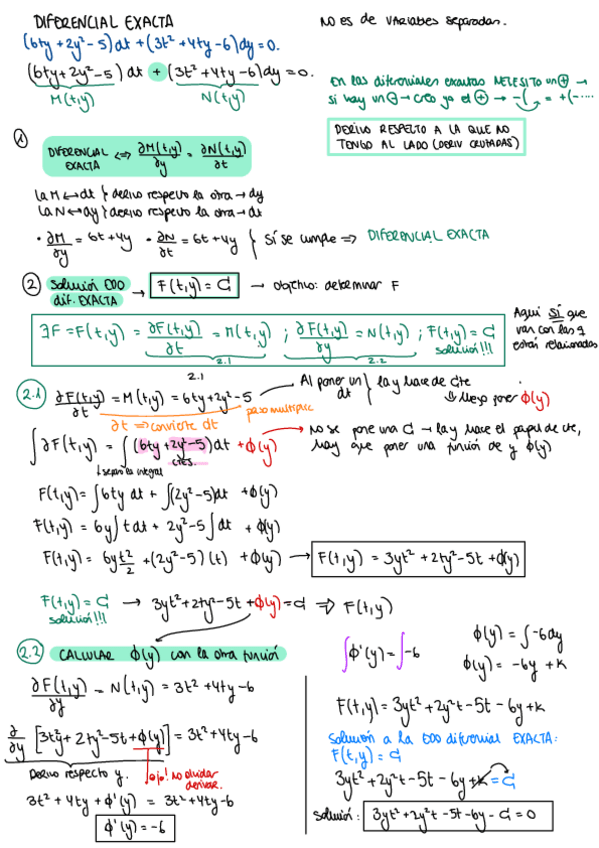 DIFERENCIAL EXACTA
NO ES DE VARIABLES SEPARADAS.
(6ty + 2y² - 5) dt + (3t² + 4ty - 6) dy = 0.
(6ty + 2y² - 5) dt + (3t² + 4ty - 6) dy = 0.
M(t,y) N(t,y)
En las diferenciales exactas NECESITO un ⊕ →
si hay un ⊖ → creo yo el ⊕ → -( = +(-....
DERIVO RESPECTO A LA QUE NO
TENGO AL LADO (DERIV CRUZADAS)
①
DIFERENCIAL EXACTA ⟺ ∂M(t,y)/∂y = ∂N(t,y)/∂t
La M ↔ dt } derivo respecto la otra → dy
La N ↔ dy } derivo respecto la otra → dt
• ∂M/∂y = 6t + 4y • ∂N/∂t = 6t + 4y } Sí se cumple ⟹ DIFERENCIAL EXACTA
② Solución EDO dif. EXACTA → F(t,y) = C → objetivo: determinar F
∃F = F(t,y) = ∂F(t,y)/∂t = M(t,y) ; ∂F(t,y)/∂y = N(t,y) ; F(t,y) = C
solución!!!
2.1 2.2
Aquí SÍ que
van con las q
están relacionadas
2.1
2.1 ∂F(t,y)/∂t = M(t,y) = 6ty + 2y² - 5
Al poner un dt } la y hace de cte
↳ luego poner φ(y)
∂t ⟹ convierte dt
paso multiplica
∫∂F(t,y) = ∫(6ty + 2y² - 5) dt + φ(y)
CTES.
↓ separo la integral
No se pone una C → la y hace el papel de cte,
hay que poner una función de y φ(y)
F(t,y) = ∫6ty dt + ∫(2y² - 5) dt + φ(y)
F(t,y) = 6y ∫t dt + 2y² - 5 ∫dt + φ(y)
F(t,y) = 6y t²/2 + (2y² - 5)(t) + φ(y) → F(t,y) = 3yt² + 2ty² - 5t + φ(y)
F(t,y) = C → 3yt² + 2ty² - 5t + φ(y) = C ⟹ F(t,y)
solución!!!
2.2 CALCULAR φ(y) con la otra función
∂F(t,y)/∂y = N(t,y) = 3t² + 4ty - 6
∂/∂y [3t²y + 2ty² - 5t + φ(y)] = 3t² + 4ty - 6
Derivo respecto y.
ojo! no olvidar
derivar.
3t² + 4ty + φ'(y) = 3t² + 4ty - 6
φ'(y) = -6
∫φ'(y) = ∫-6
φ(y) = ∫-6dy
φ(y) = -6y + K
F(t,y) = 3yt² + 2y²t - 5t - 6y + K
Solución a la EDO diferencial EXACTA:
F(t,y) = C
3yt² + 2y²t - 5t - 6y + K = C
Solución: 3yt² + 2y²t - 5t - 6y - C = 0